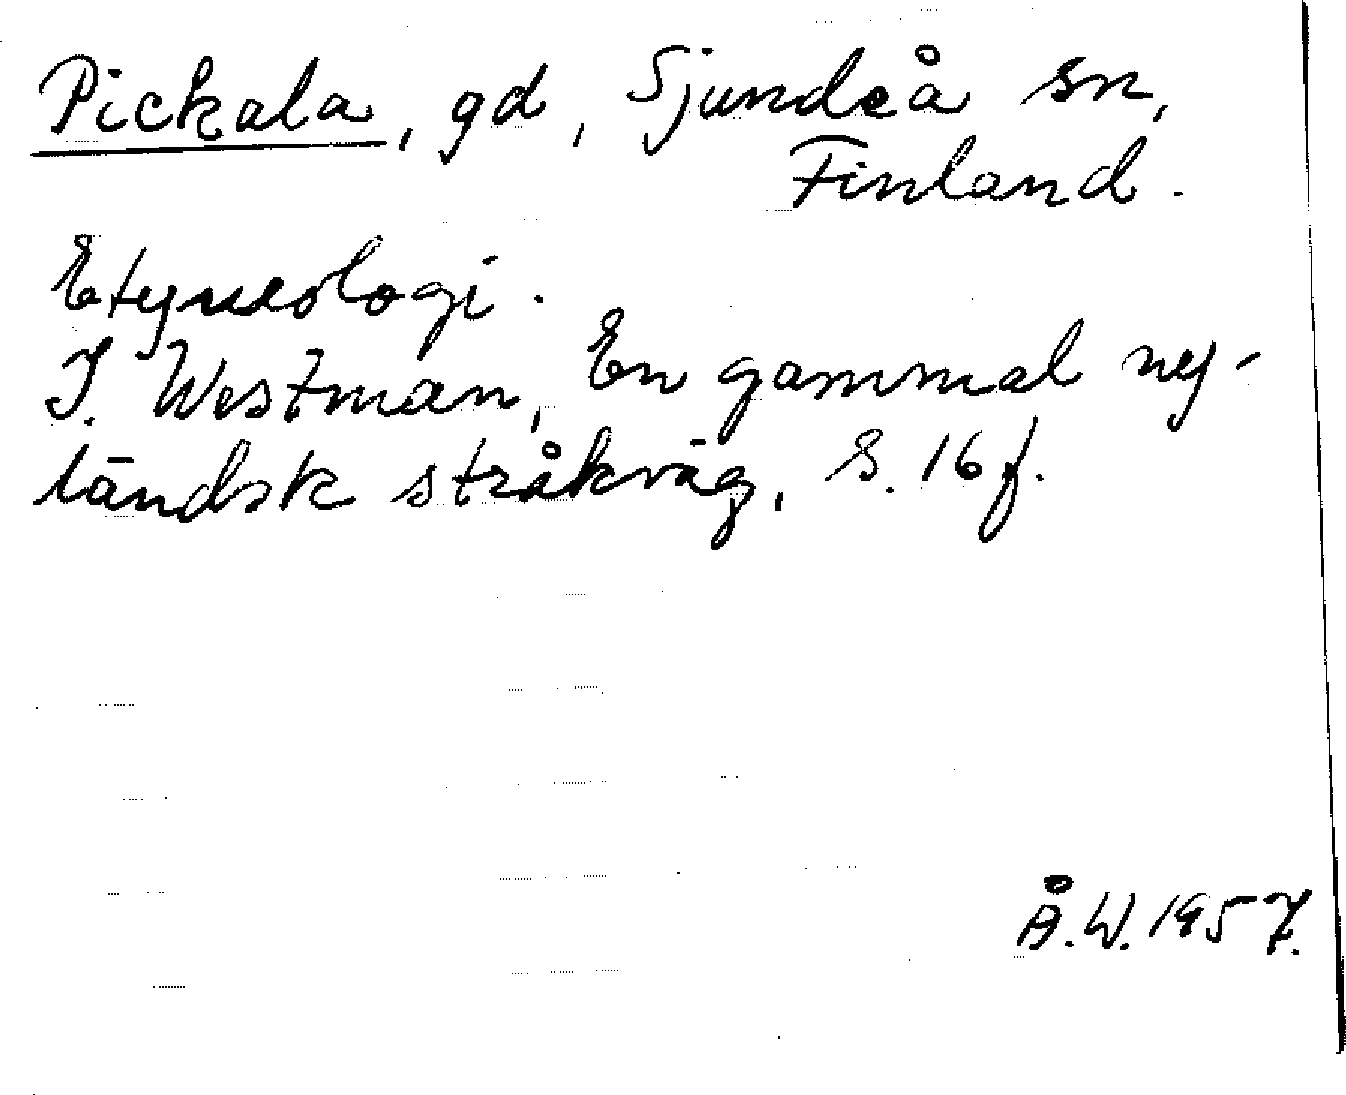 Pickala, gd, Sjundeå sn,
Finland.
Etymologi.
I. Westman, En gammal ny-
ländsk stråkväg, S. 16 f.
Å.W. 1957.